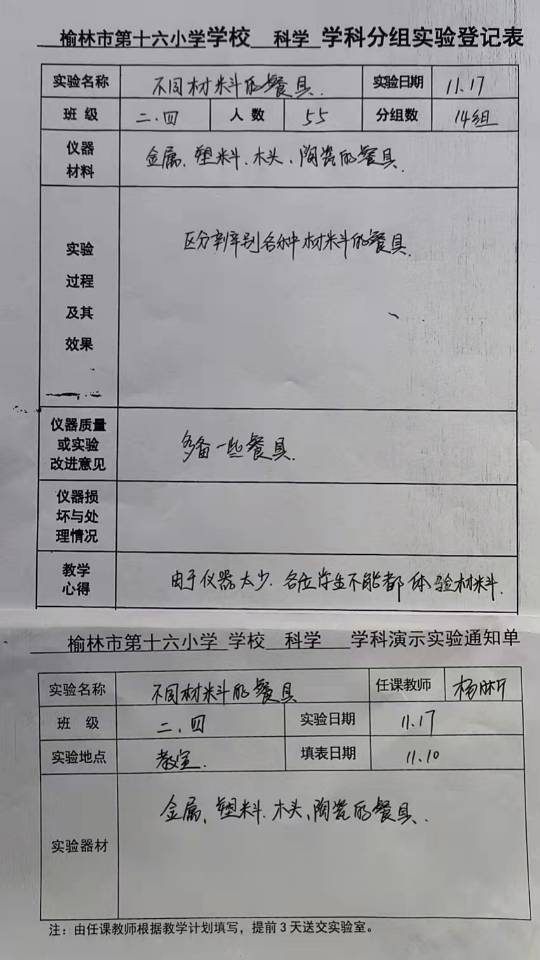 榆林市第十六小学学校 科学 学科分组实验登记表
实验名称 不同材料的餐具. 实验日期 11.17
班 级 二.四 人 数 55 分组数 14组
仪器
材料
金属.塑料.木头.陶瓷的餐具.
实验
过程
及其
效果
区分辨别各种材料的餐具.
仪器质量
或实验
改进意见
多备一些餐具.
仪器损
坏与处
理情况
教学
心得
由于仪器太少.各位学生不能都体验材料.
榆林市第十六小学 学校 科学 学科演示实验通知单
实验名称 不同材料的餐具 任课教师
班 级 二.四 实验日期 11.17
实验地点 教室. 填表日期 11.10
实验器材 金属.塑料.木头,陶瓷的餐具.
注：由任课教师根据教学计划填写，提前3天送交实验室。